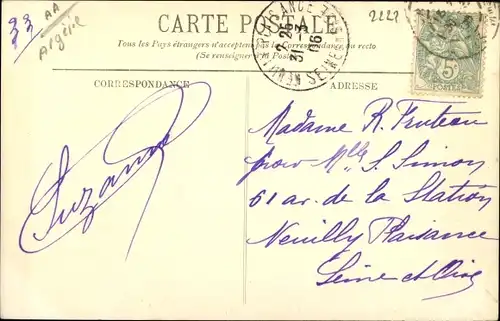 33
AA
Algérie
2229
CARTE POSTALE
Tous les Pays étrangers n'acceptent pas la Correspondance au recto
(Se renseigner à la Poste)
31 -3
06
5c
POSTES
CORRESPONDANCE
ADRESSE
Suzanne
Madame R. Fruteau
pour Mlle S. Simon
61 av. de la Station
Neuilly Plaisance
Seine et Oise